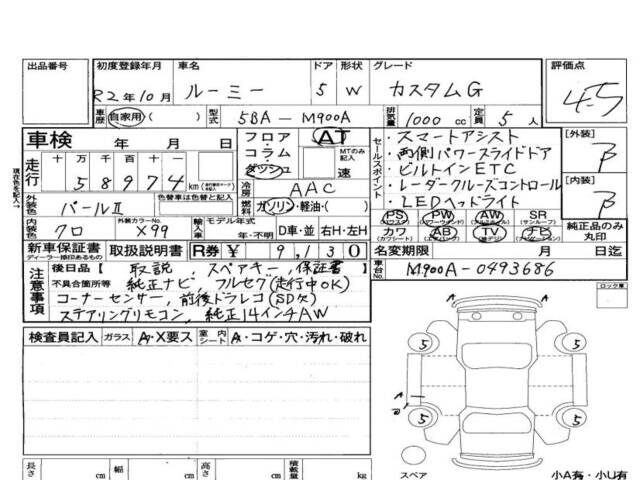 出品番号 初度登録年月 車名 ドア 形状 グレード 評価点
R2年10月 ルーミー 5 W カスタムG 4.5
車歴 自家用( ) 型式 5BA-M900A 排気量 1000cc 定員 5人
車検 年 月 日 フロア AT
コラム MTのみ記入
ダッシュ 速
走行 十万千百十
58974km
冷房 AAC
外装色 パールⅡ 色替車は色替と記入 燃料 ガソリン・軽油・( )
内装色 クロ 外装カラーNo. X99 輸入車 モデル年式 年・不明 D車・並 右H・左H
セールスポイント
・スマートアシスト
・両側パワースライドドア
・ビルトインETC
・レーダークルーズコントロール
・LEDヘッドライト
[外装] B
[内装] B
PS PW AW SR
(パワステ) (パワーウィンド) (アルミホイール) (サンルーフ)
カワ AB TV ナビ
(カワシート) (エアバッグ)
純正品のみ丸印
新車保証書 取扱説明書 R券 ¥ 9,130 名変期限 月 日迄
ディーラー捺印あるもの
注意事項
後日品 取説、スペアキー、保証書
不具合箇所等 純正ナビ、フルセグ(走行中OK)
コーナーセンサー、前後ドラレコ(SD欠)
ステアリングリモコン、純正14インチAW
車台No. M900A-0493686
ロック車
検査員記入 ガラス A・X要ス 室内シート A・コゲ・穴・汚れ・破れ
5 5
A
5 5
スペア 小A有・小U有
長さ cm 幅 cm 高さ cm 積載量 kg
現在色を記入→